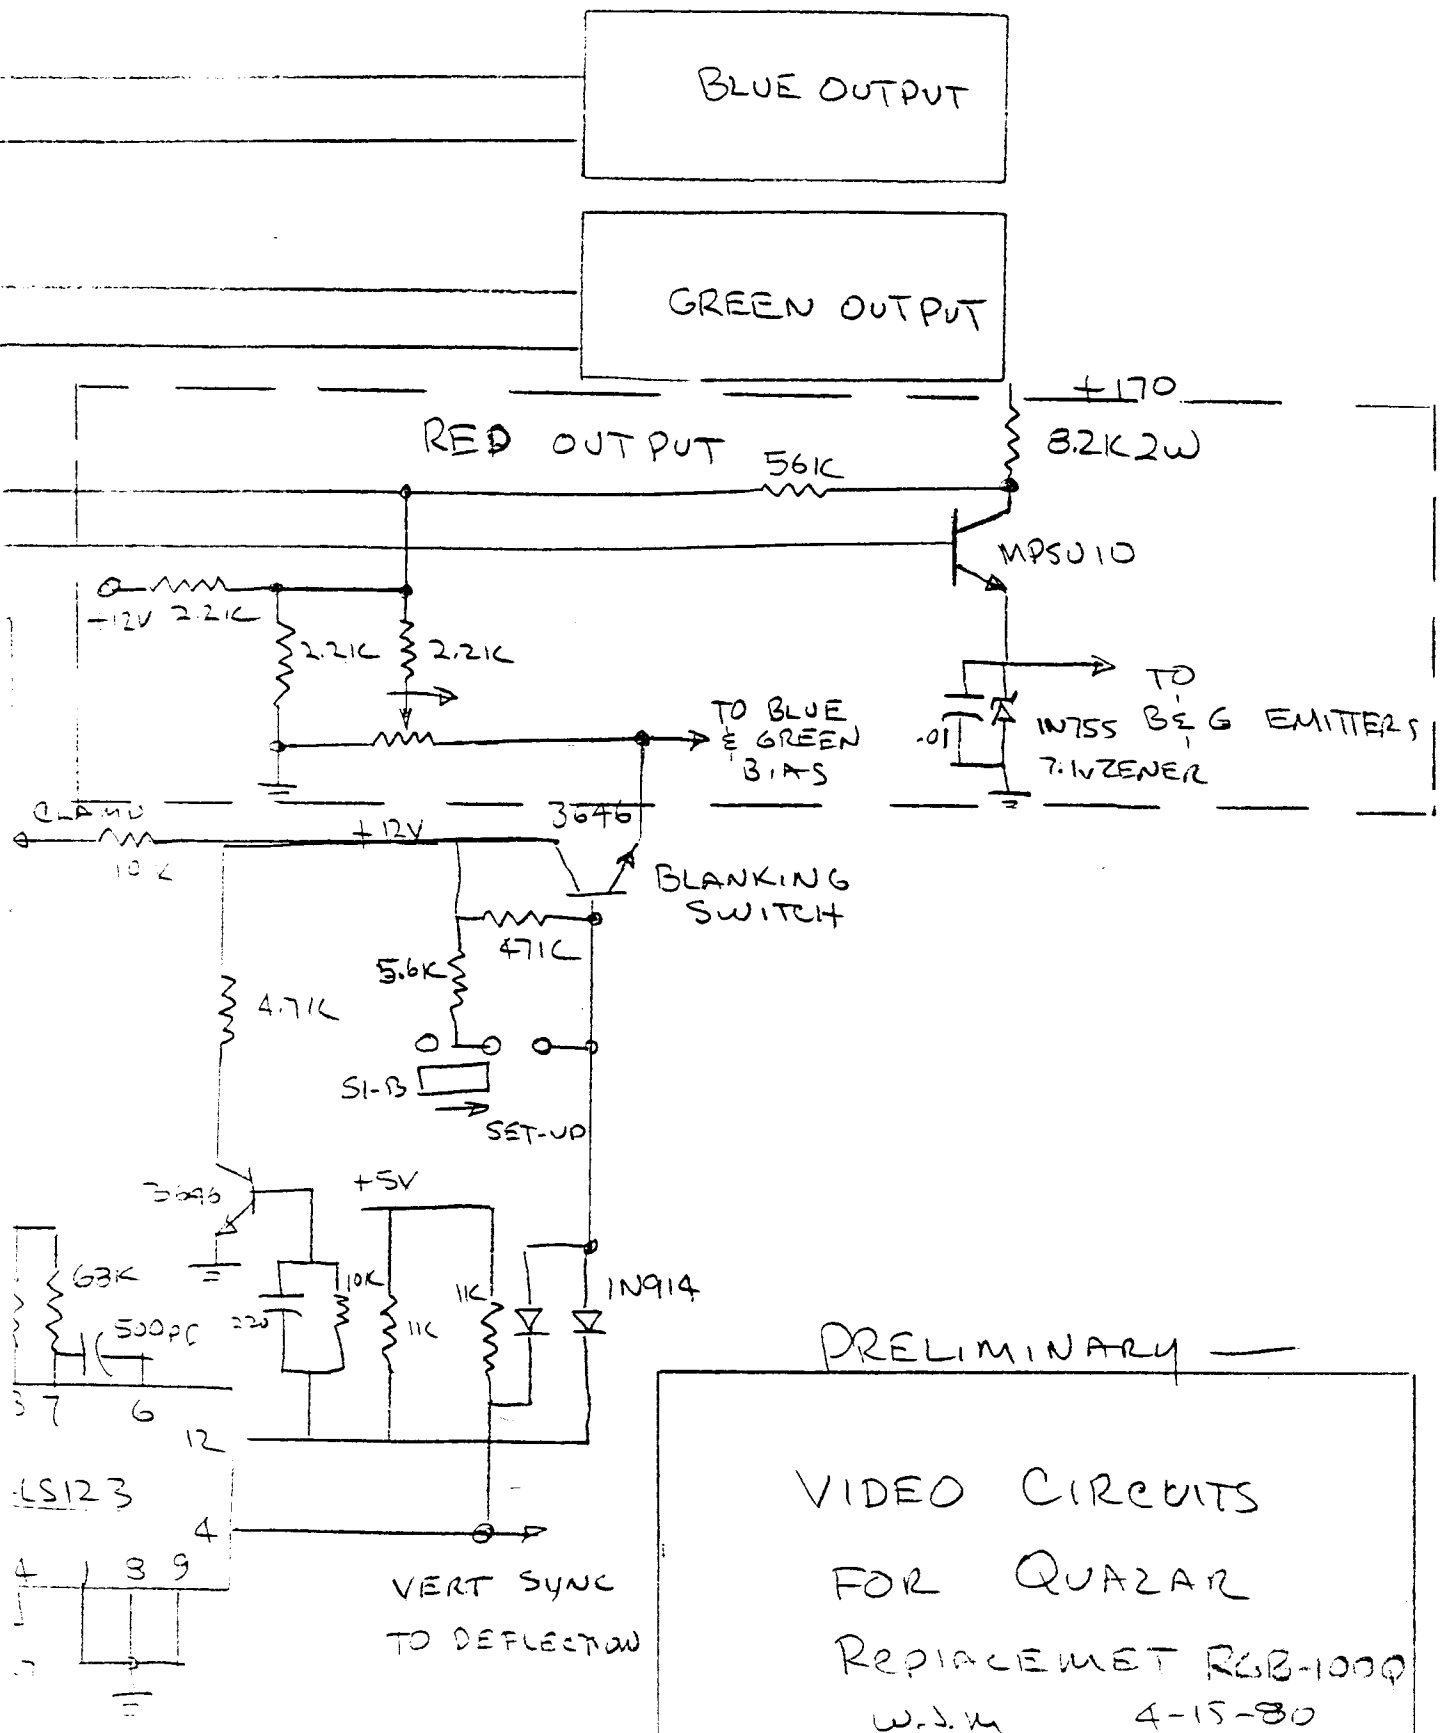 BLUE OUTPUT
GREEN OUTPUT
+170
RED OUTPUT
56K
8.2K 2W
MPSU10
+12V 2.2K
2.2K
2.2K
TO BLUE
& GREEN
BIAS
.01
1N755
7.1V ZENER
TO
B & G EMITTERS
CLAMP
10K
+12V
3646
BLANKING
SWITCH
47K
5.6K
4.7K
S1-B
SET-UP
3646
+5V
63K
500PF
220
10K
1K
1K
1N914
PRELIMINARY
3 7 6
12
LS123
4
4 1 8 9
VERT SYNC
TO DEFLECTION
VIDEO CIRCUITS
FOR QUAZAR
REPLACEMET RGB-100Q
W.J.M 4-15-80